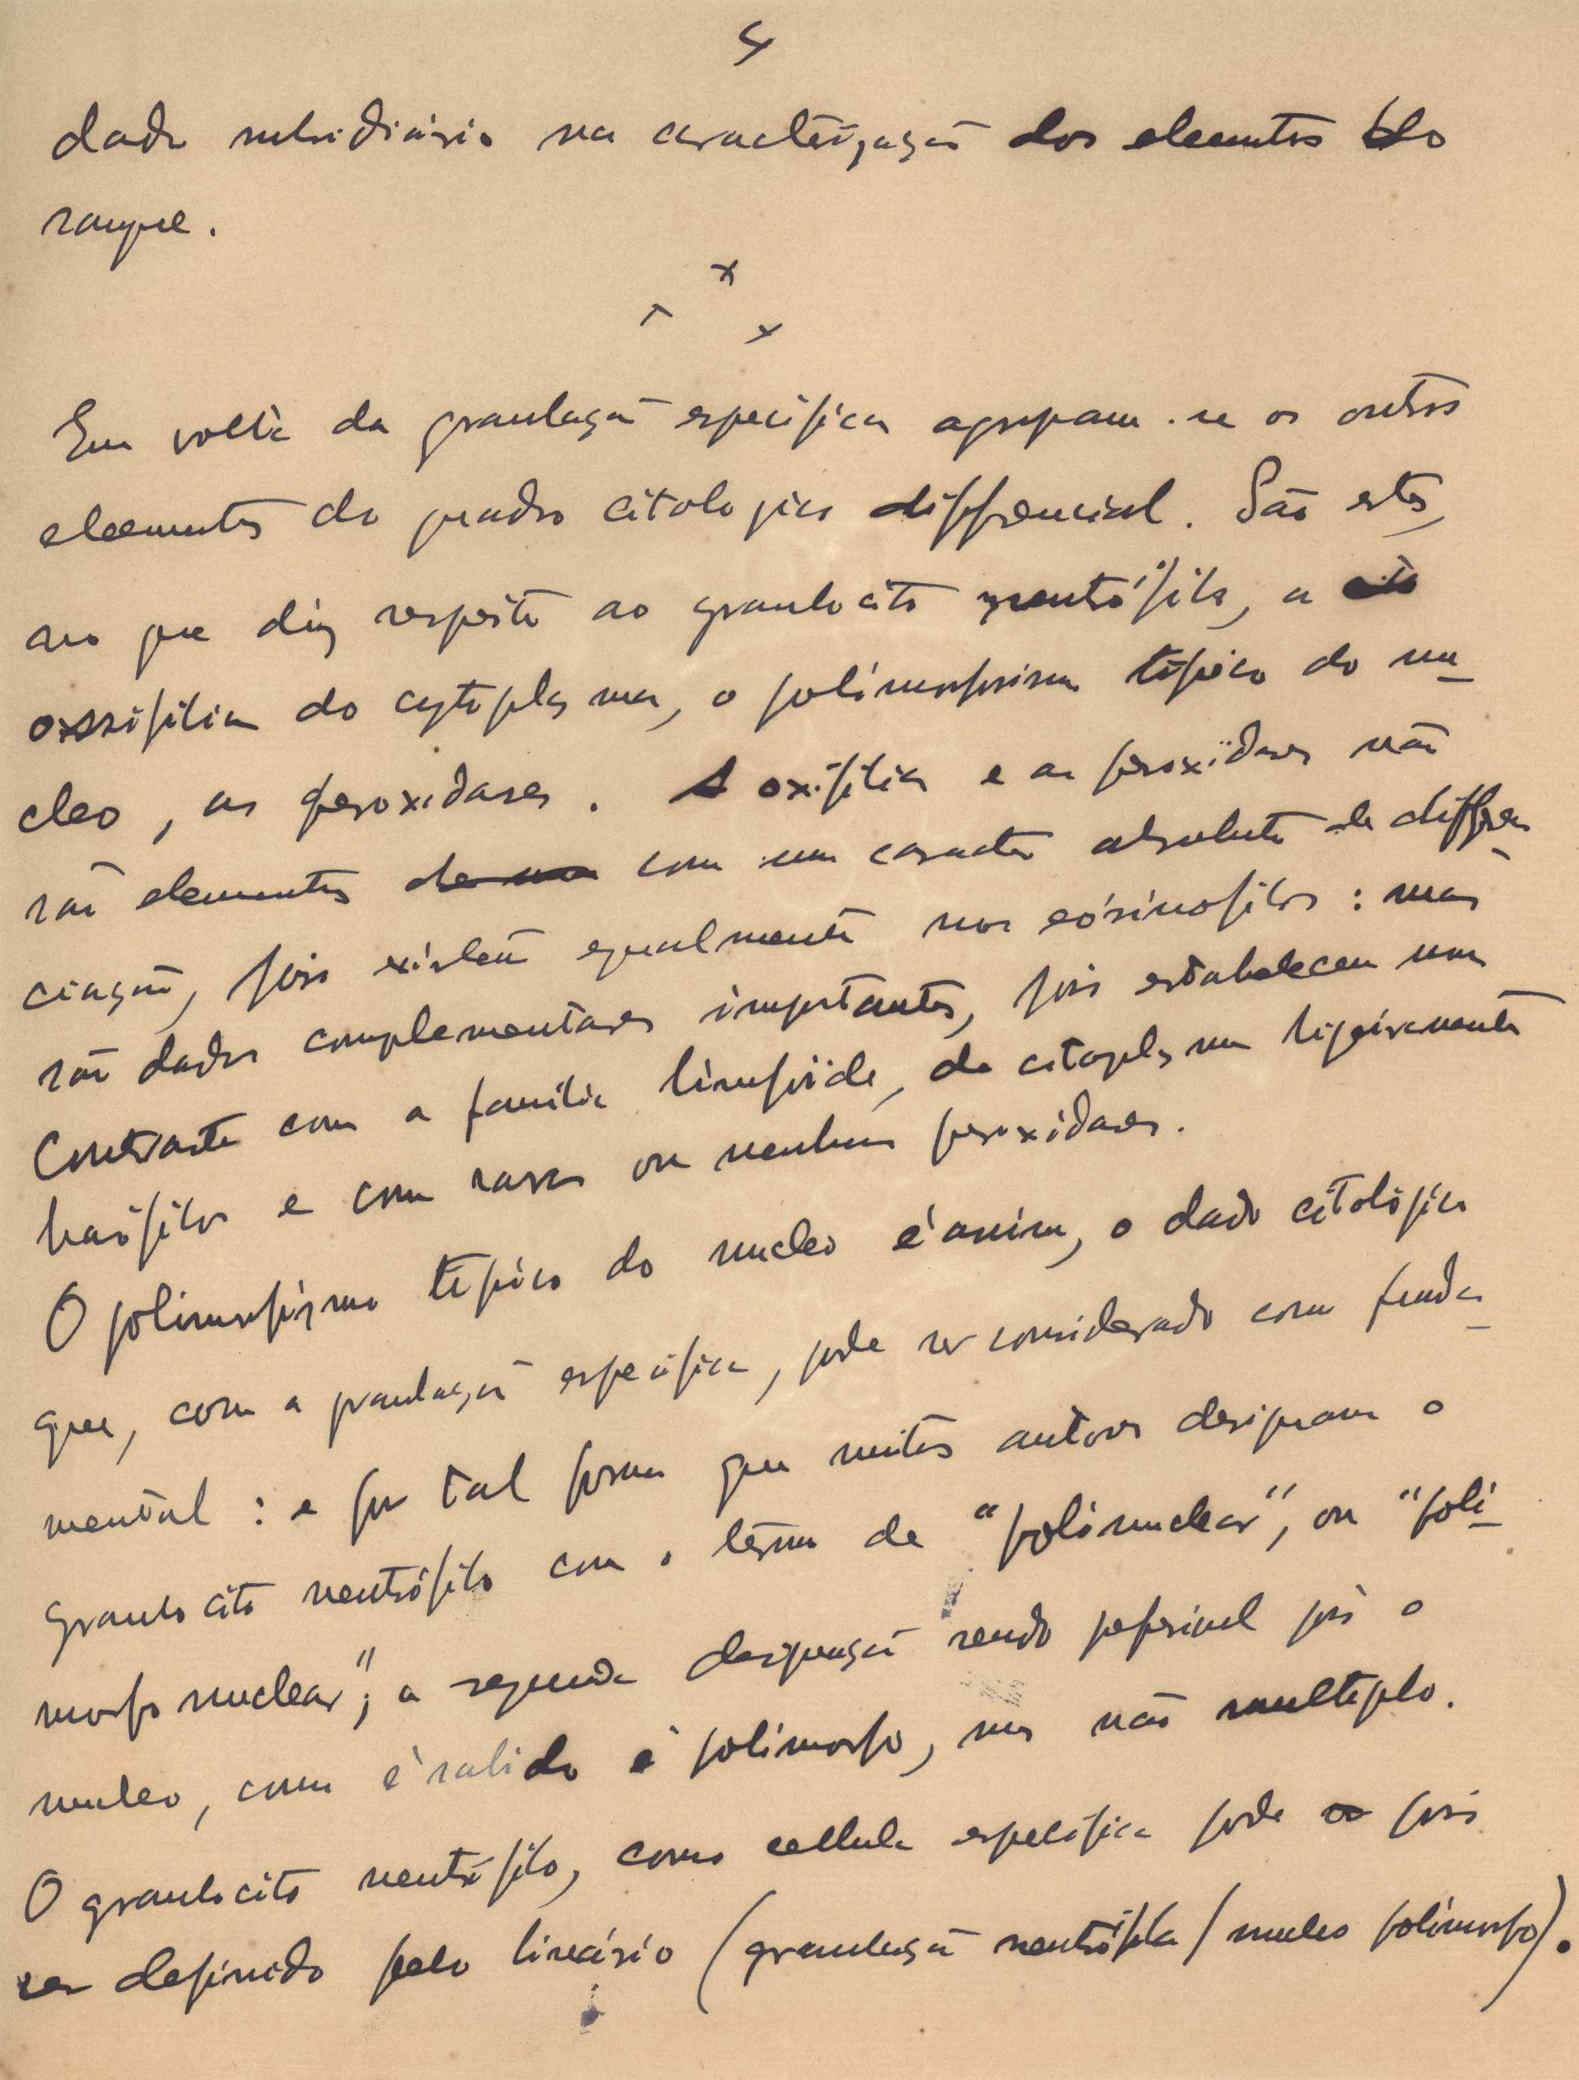 4
dado subsidiário na caracterização dos elementos do
sangue.
x
x x
Em volta da granulação especifica agrupam-se os outros
elementos do quadro citologico differencial. São estes,
no que diz respeito ao granulocito neutrófilo, a
oxifilia do cytoplasma, o polimorfismo típico do nu-
cleo, as peroxidases. A oxifilia e as peroxidases não
são elementos com um caracter absoluto de differen-
ciação, pois existem egualmente nos eósinofilos: mas
são dados complementares importantes, pois estabelecem um
contraste com a familia linfóide, de citoplasma ligeiramente
basófilo e com raras ou nenhumas peroxidases.
O polimorfismo típico do nucleo é assim, o dado citológico
que, com a granulação especifica, pode ser considerado como funda-
mental: e por tal forma que muitos autores designam o
granulocito neutrófilo com o termo de "polinuclear", ou "poli-
morfo nuclear"; a segunda designação sendo preferivel pois o
nucleo, como é sabido é polimorfo, mas não multiplo.
O granulocito neutrófilo, como cellula especifica pode pois
ser definido pelo lineário (granulação neutrófila / nucleo polimorfo).